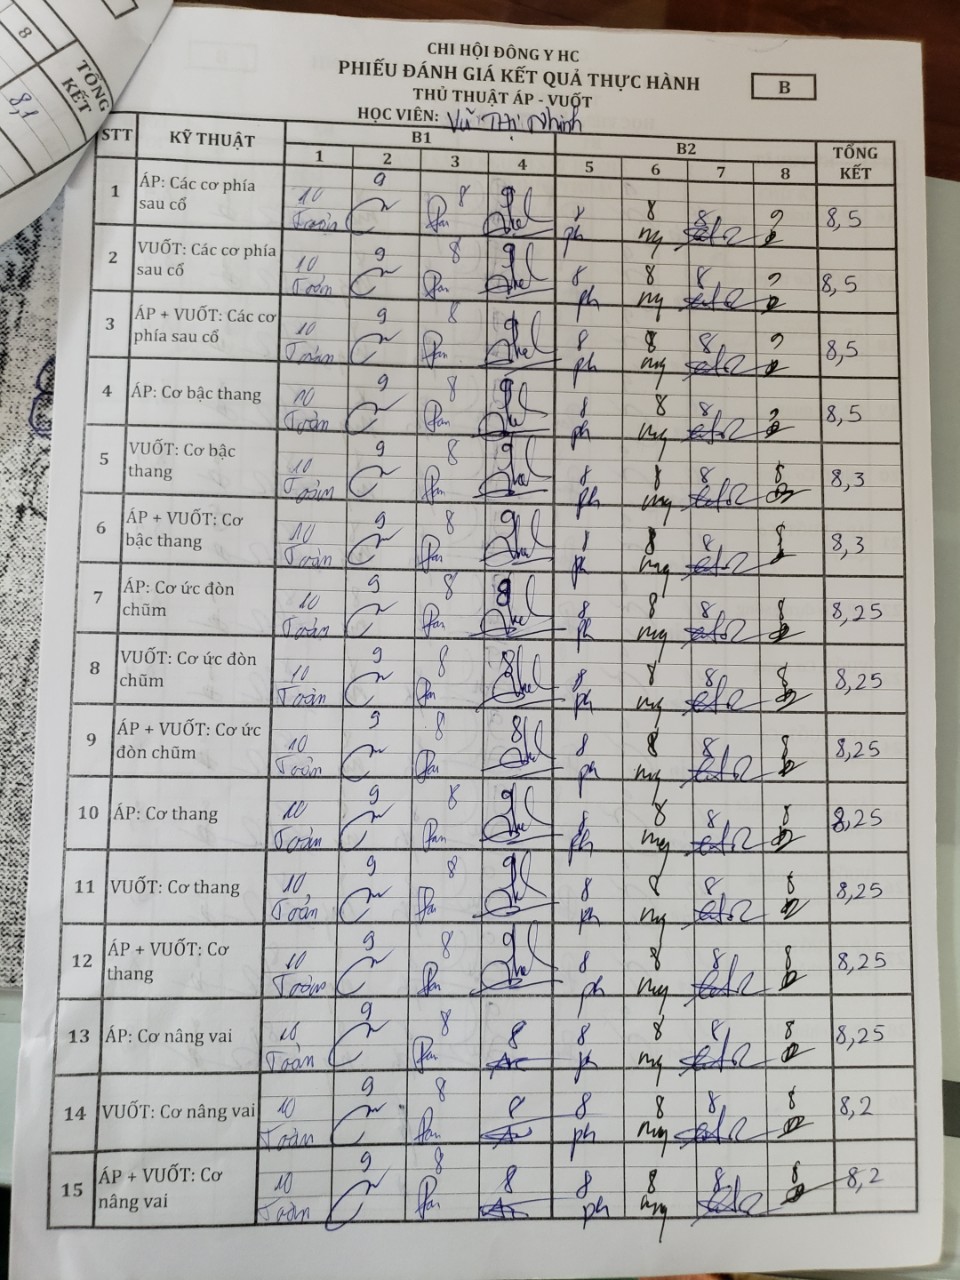 TỔNG
KẾT
8
8,1
CHI HỘI ĐÔNG Y HC
PHIẾU ĐÁNH GIÁ KẾT QUẢ THỰC HÀNH
B
THỦ THUẬT ÁP - VUỐT
HỌC VIÊN: Vũ Thị Nhịnh
STT KỸ THUẬT B1 B2 TỔNG KẾT
1 2 3 4 5 6 7 8
1 ÁP: Các cơ phía sau cổ 10 9 8 9 8 8 8 9 8,5
Toản ph my
2 VUỐT: Các cơ phía sau cổ 10 9 8 9 8 8 8 9 8,5
Toản ph my
3 ÁP + VUỐT: Các cơ phía sau cổ 10 9 8 9 8 8 8 9 8,5
Toản ph my
4 ÁP: Cơ bậc thang 10 9 8 9 8 8 8 9 8,5
Toản ph my
5 VUỐT: Cơ bậc thang 10 9 8 9 8 8 8 8 8,3
Toản ph my
6 ÁP + VUỐT: Cơ bậc thang 10 9 8 9 8 8 8 8 8,3
Toản ph my
7 ÁP: Cơ ức đòn chũm 10 9 8 8 8 8 8 8 8,25
Toản ph my
8 VUỐT: Cơ ức đòn chũm 10 9 8 8 8 8 8 8 8,25
Toản ph my
9 ÁP + VUỐT: Cơ ức đòn chũm 10 9 8 8 8 8 8 8 8,25
Toản ph my
10 ÁP: Cơ thang 10 9 8 9 8 8 8 8 8,25
Toản ph my
11 VUỐT: Cơ thang 10 9 8 9 8 8 8 8 8,25
Toản ph my
12 ÁP + VUỐT: Cơ thang 10 9 8 9 8 8 8 8 8,25
Toản ph my
13 ÁP: Cơ nâng vai 10 9 8 8 8 8 8 8 8,25
Toản ph my
14 VUỐT: Cơ nâng vai 10 9 8 8 8 8 8 8 8,2
Toản ph my
15 ÁP + VUỐT: Cơ nâng vai 10 9 8 8 8 8 8 8 8,2
Toản ph my